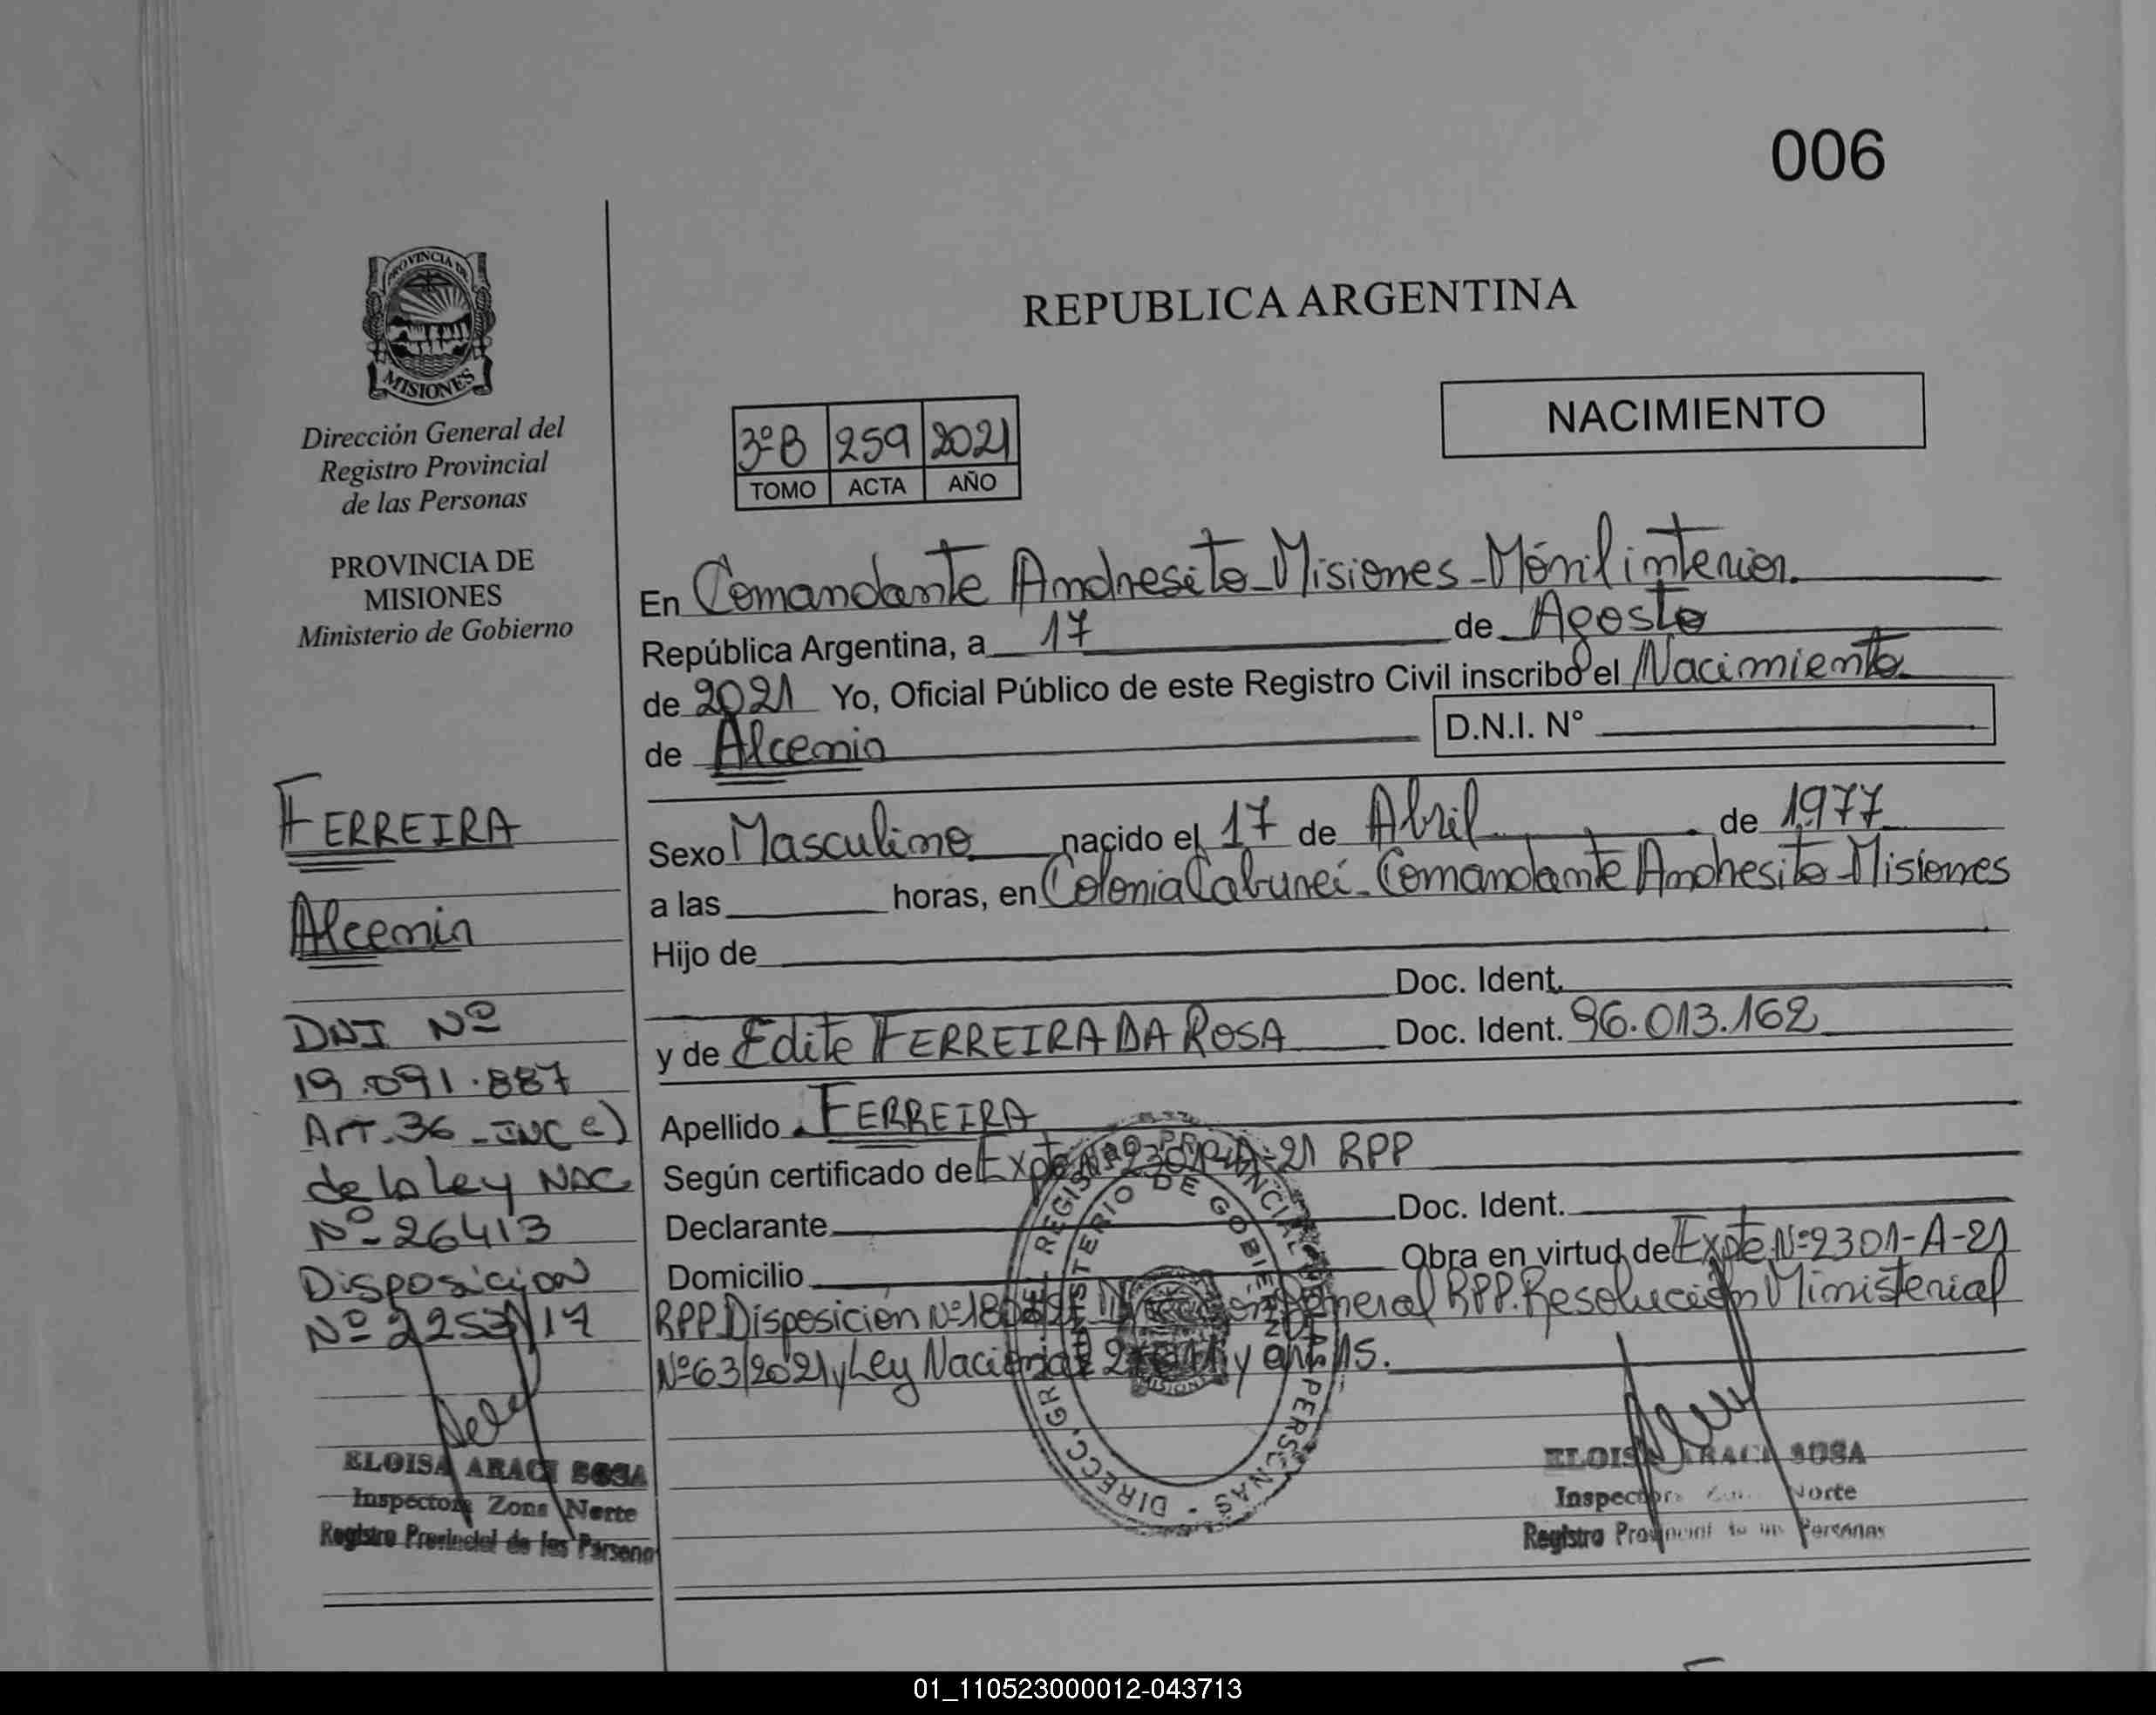 006
PROVINCIA DE
MISIONES
Dirección General del
Registro Provincial
de las Personas
PROVINCIA DE
MISIONES
Ministerio de Gobierno
FERREIRA
Alcemir
DNI Nº
19.091.887
Art. 36 - INC e)
de la Ley NAC
Nº 26413
Disposicion
Nº 2253/17
ELOISA ARACI SOSA
Inspectora Zona Norte
Registro Provincial de las Persona
REPUBLICA ARGENTINA
NACIMIENTO
3ºB 259 2021
TOMO ACTA AÑO
En Comandante Andresito - Misiones - Móvil interior.
República Argentina, a 17 de Agosto
de 2021 Yo, Oficial Público de este Registro Civil inscribo el Nacimiento
de Alcemir D.N.I. N°
Sexo Masculino nacido el 17 de Abril de 1977
a las horas, en Colonia Caburei - Comandante Andresito - Misiones
Hijo de
Doc. Ident.
y de Edite FERREIRA DA ROSA Doc. Ident. 96.013.162
Apellido FERREIRA
Según certificado de Expte Nº 2301-A-21 RPP
Declarante Doc. Ident.
Domicilio Obra en virtud de Expte Nº 2301-A-21
RPP Disposición Nº General RPP. Resolución Ministerial
Nº 63/2021 y Ley Nacional y
DIRECC. GRAL. REGISTRO PROVINCIAL DE LAS PERSONAS
MINISTERIO DE GOBIERNO
MISIONES
ELOISA ARACI SOSA
Inspectora Zona Norte
Registro Provincial de las Personas
01_110523000012-043713